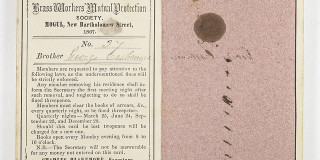 Brass Workers Mutual Protection
SOCIETY.
HOUSE, New Bartholomew Street,
1867.
No. 37
Brother George
Members are requested to pay attention to the
following laws, as the undermentioned fines will
be strictly enforced.
Any member removing his residence shall inform
the Secretary the first meeting night after
such removal, and neglecting to do so shall be
fined threepence.
Members must clear the books of arrears, &c.,
every quarterly night, or be fined threepence.
Quarterly nights—March 25, June 24, September
29, and December 25.
Should this card be lost twopence will be
charged for a new one.
Books open every Monday evening from 8 to
10 o'clock.
N.B.—The Secretary will not be answerable
for any money not entered on this card.
CHARLES BLAKEMORE, Secretary.